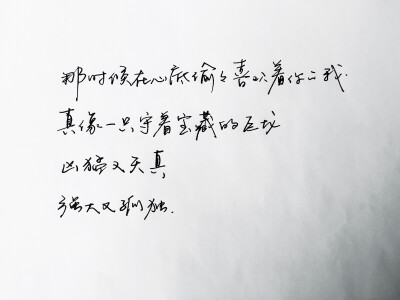 那时候在心底偷々喜欢着你的我.
真像一只守着宝藏的巨龙
凶猛又天真
强大又孤独.